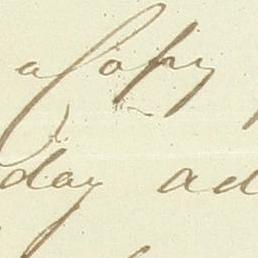 a Copy
day ad